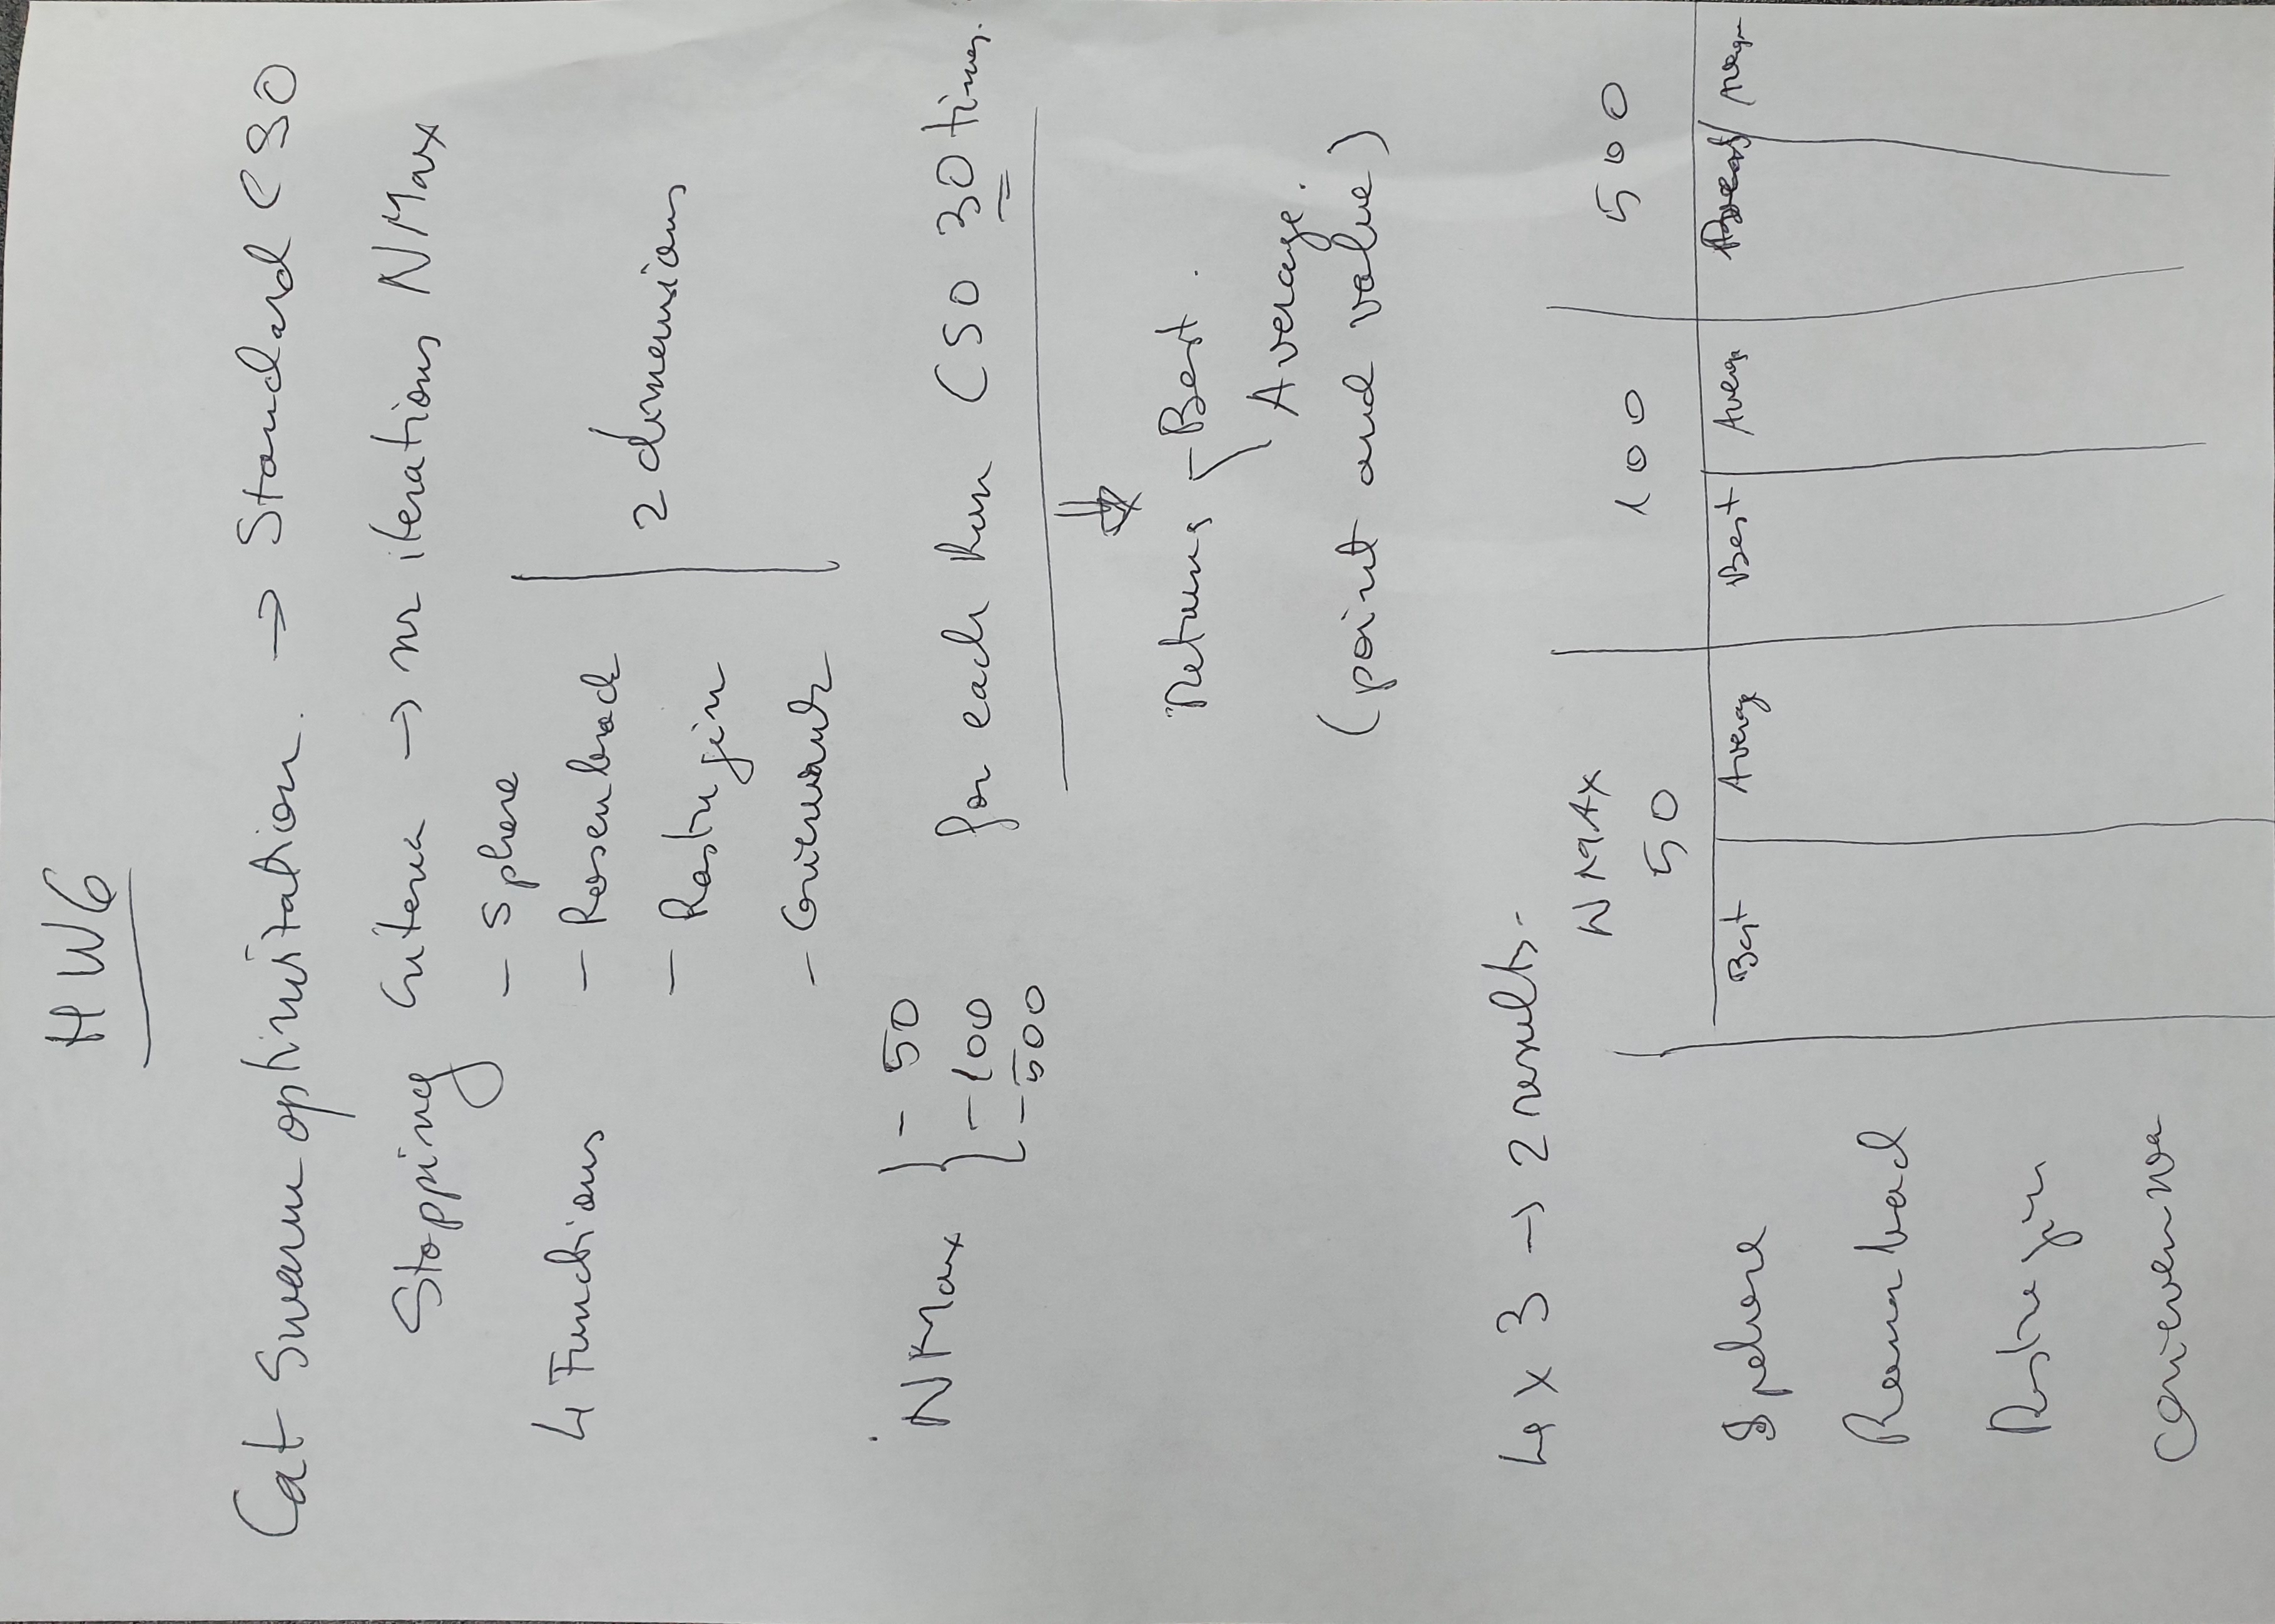 HW6
Cat Swarm optimization. → Standard CSO
Stopping Criteria → nr iterations NMax
4 Functions
- Sphere
- Rosenbrock
- Rastrigin
- Griewank
2 dimensions
NMax
- 50
- 100
- 500
for each Run CSO 30 times.
Returns - Best.
Average.
(point and value)
4 x 3 → 2 results.
NMAX
50
100
500
Best Average Best Average Best Average
Sphere
Rastrigin